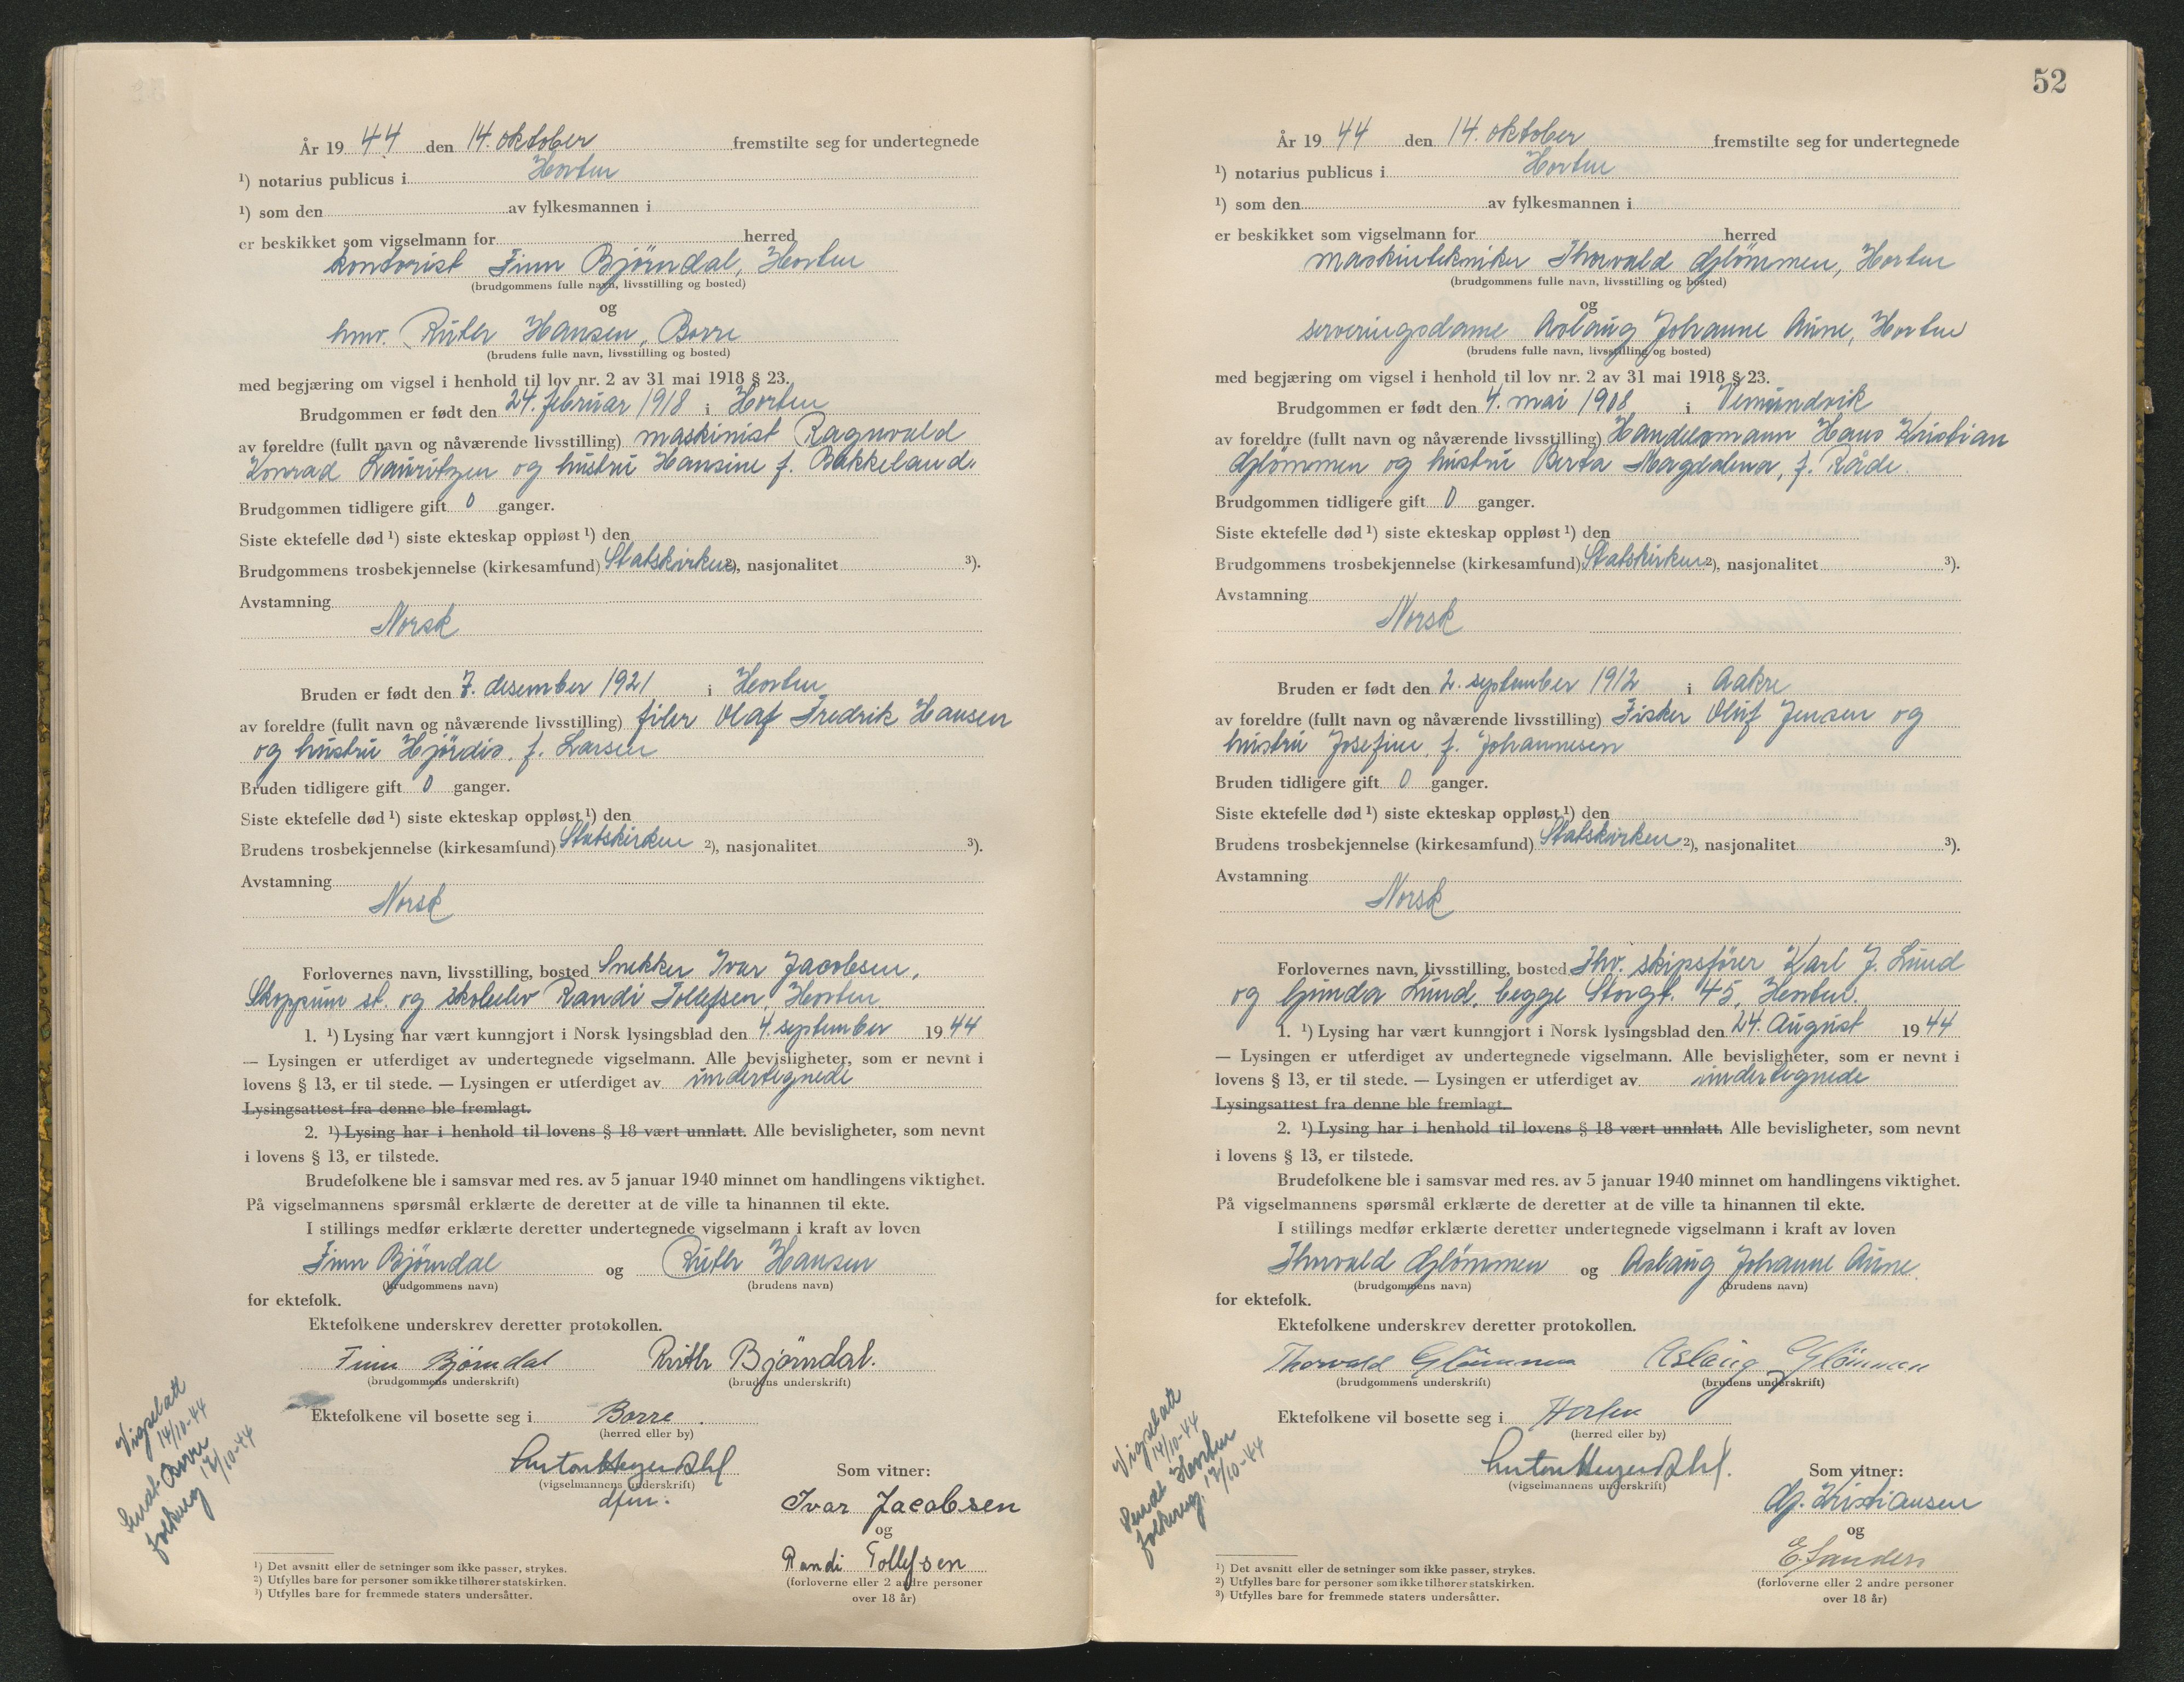 År 19 44 den 14. oktober fremstilte seg for undertegnede
¹) notarius publicus i Horten
¹) som den av fylkesmannen i
er beskikket som vigselmann for herred
kontorist Finn Björndal, Horten
(brudgommens fulle navn, livsstilling og bosted)
og
hmv. Ruth Hansen, Borre
(brudens fulle navn, livsstilling og bosted)
med begjæring om vigsel i henhold til lov nr. 2 av 31 mai 1918 § 23.
Brudgommen er født den 24. februar 1918 i Horten
av foreldre (fullt navn og nåværende livsstilling) maskinist Ragnvald
Konrad Lauritzen og hustru Hansine f. Bakkeland.
Brudgommen tidligere gift 0 ganger.
Siste ektefelle død ¹) siste ekteskap oppløst ¹) den
Brudgommens trosbekjennelse (kirkesamfund) Statskirken ²), nasjonalitet ³).
Avstamning
Norsk
Bruden er født den 7. desember 1921 i Horten
av foreldre (fullt navn og nåværende livsstilling) filer Olaf Fredrik Hansen
og hustru Hjördis, f. Larsen
Bruden tidligere gift 0 ganger.
Siste ektefelle død ¹) siste ekteskap oppløst ¹) den
Brudens trosbekjennelse (kirkesamfund) Statskirken ²), nasjonalitet ³).
Avstamning
Norsk
Forlovernes navn, livsstilling, bosted Snekker Ivar Jacobsen,
Skoppum st. og skoleelev Randi Tollefsen, Horten
1. ¹) Lysing har vært kunngjort i Norsk lysingsblad den 4. september 1944
— Lysingen er utferdiget av undertegnede vigselmann. Alle bevisligheter, som er nevnt i
lovens § 13, er til stede. — Lysingen er utferdiget av undertegnede
Lysingsattest fra denne ble fremlagt.
2. ¹) Lysing har i henhold til lovens § 18 vært unnlatt. Alle bevisligheter, som nevnt
i lovens § 13, er tilstede.
Brudefolkene ble i samsvar med res. av 5 januar 1940 minnet om handlingens viktighet.
På vigselmannens spørsmål erklærte de deretter at de ville ta hinannen til ekte.
I stillings medfør erklærte deretter undertegnede vigselmann i kraft av loven
Finn Björndal og Ruth Hansen
(brudgommens navn) (brudens navn)
for ektefolk.
Ektefolkene underskrev deretter protokollen.
Finn Bjørndal Ruth Bjørndal.
(brudgommens underskrift) (brudens underskrift)
Ektefolkene vil bosette seg i Borre.
(herred eller by)
Anton Meyer Dahl
(vigselmannens underskrift)
dfm.
Som vitner:
Ivar Jacobsen
og
Randi Tollefsen
(forloverne eller 2 andre personer
over 18 år)
Vigselatt
14/10-44
Sendt Borre
folkereg 17/10-44
¹) Det avsnitt eller de setninger som ikke passer, strykes.
²) Utfylles bare for personer som ikke tilhører statskirken.
³) Utfylles bare for fremmede staters undersåtter.
52
År 19 44 den 14. oktober fremstilte seg for undertegnede
¹) notarius publicus i Horten
¹) som den av fylkesmannen i
er beskikket som vigselmann for herred
maskintekniker Thorvald Glömmen, Horten
(brudgommens fulle navn, livsstilling og bosted)
og
serveringsdame Aslaug Johanne Aune, Horten
(brudens fulle navn, livsstilling og bosted)
med begjæring om vigsel i henhold til lov nr. 2 av 31 mai 1918 § 23.
Brudgommen er født den 4. mai 1908 i Vemundvik
av foreldre (fullt navn og nåværende livsstilling) Handelsmann Hans Kristian
Glömmen og hustru Berta Magdalena, f. Råde.
Brudgommen tidligere gift 0 ganger.
Siste ektefelle død ¹) siste ekteskap oppløst ¹) den
Brudgommens trosbekjennelse (kirkesamfund) Statskirken ²), nasjonalitet ³).
Avstamning
Norsk
Bruden er født den 2. september 1912 i Aakre
av foreldre (fullt navn og nåværende livsstilling) Fisker Oluf Jensen og
hustru Josefine, f. Johannesen
Bruden tidligere gift 0 ganger.
Siste ektefelle død ¹) siste ekteskap oppløst ¹) den
Brudens trosbekjennelse (kirkesamfund) Statskirken ²), nasjonalitet ³).
Avstamning
Norsk
Forlovernes navn, livsstilling, bosted Fhv. skipsfører Karl J. Lund
og Gunda Lund, begge Storgt. 45, Horten.
1. ¹) Lysing har vært kunngjort i Norsk lysingsblad den 24. August 1944
— Lysingen er utferdiget av undertegnede vigselmann. Alle bevisligheter, som er nevnt i
lovens § 13, er til stede. — Lysingen er utferdiget av undertegnede
Lysingsattest fra denne ble fremlagt.
2. ¹) Lysing har i henhold til lovens § 18 vært unnlatt. Alle bevisligheter, som nevnt
i lovens § 13, er tilstede.
Brudefolkene ble i samsvar med res. av 5 januar 1940 minnet om handlingens viktighet.
På vigselmannens spørsmål erklærte de deretter at de ville ta hinannen til ekte.
I stillings medfør erklærte deretter undertegnede vigselmann i kraft av loven
Thorvald Glömmen og Aslaug Johanne Aune.
(brudgommens navn) (brudens navn)
for ektefolk.
Ektefolkene underskrev deretter protokollen.
Thorvald Glömmen Aslaug Glömmen
(brudgommens underskrift) (brudens underskrift)
Ektefolkene vil bosette seg i Horten
(herred eller by)
Anton Meyer Dahl.
(vigselmannens underskrift)
Som vitner:
Kristiansen
og
E. Sanders
(forloverne eller 2 andre personer
over 18 år)
Vigselatt
14/10-44
Sendt Horten
folkereg. 17/10-44
¹) Det avsnitt eller de setninger som ikke passer, strykes.
²) Utfylles bare for personer som ikke tilhører statskirken.
³) Utfylles bare for fremmede staters undersåtter.